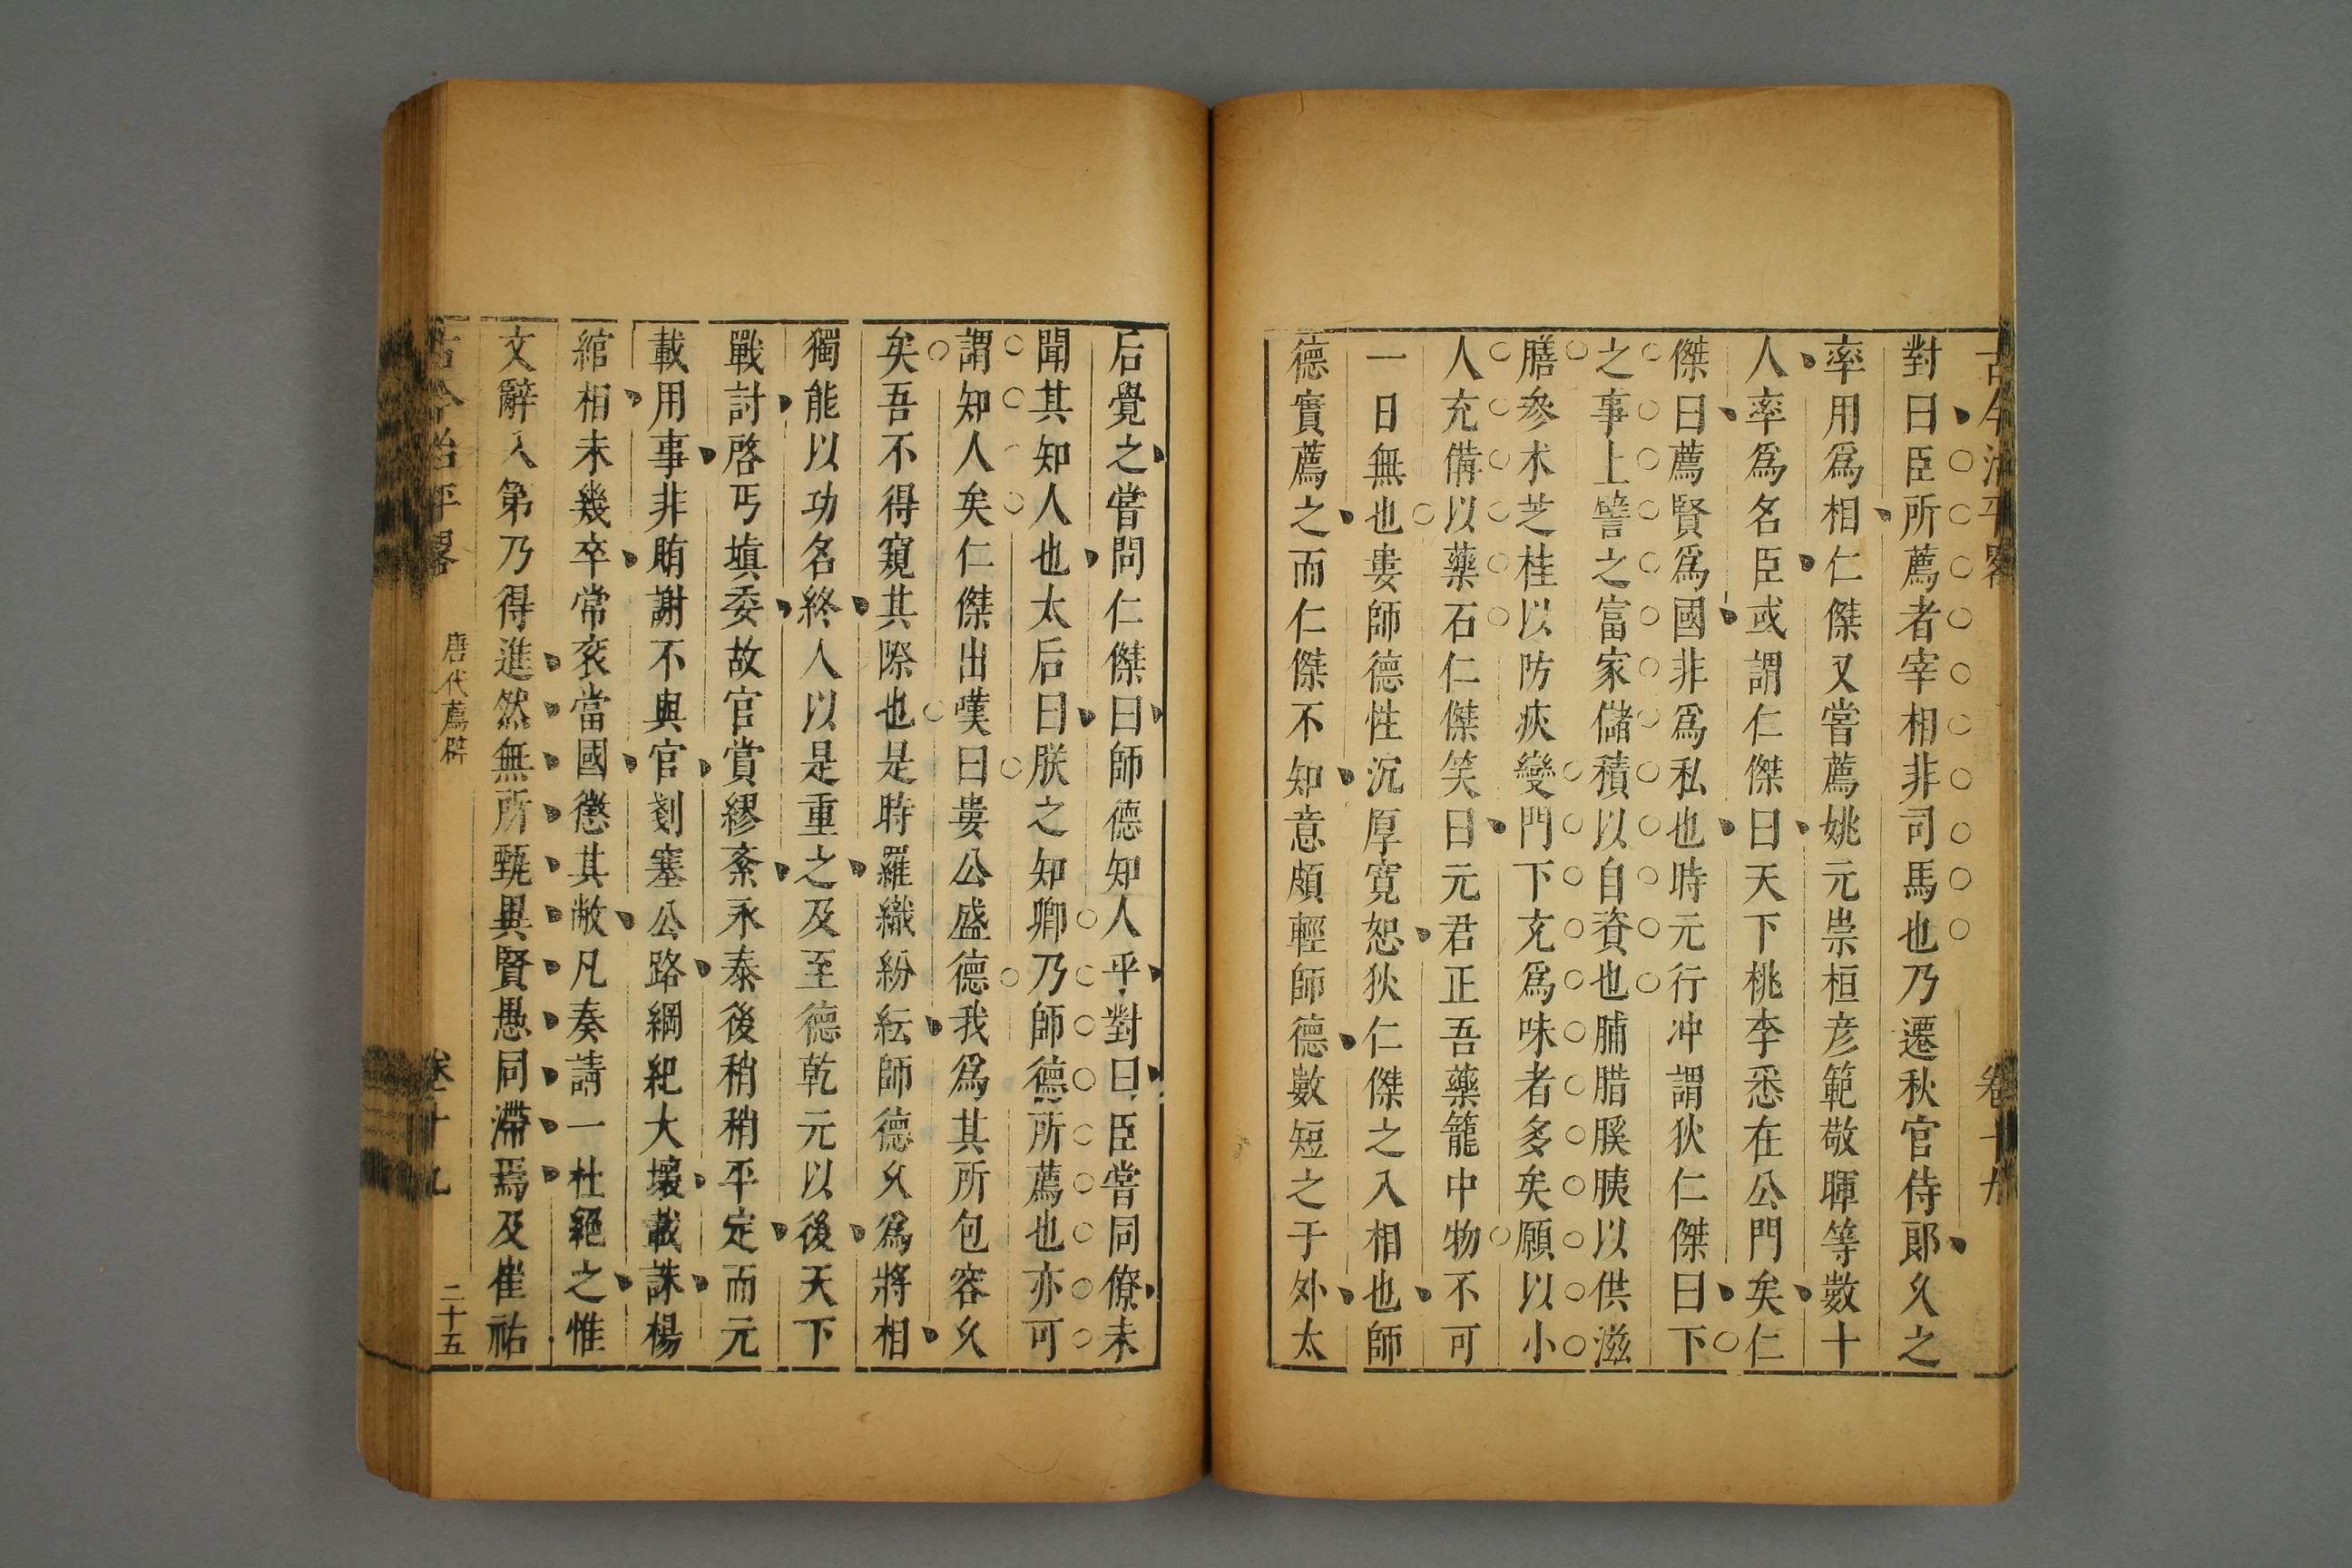 古今治平畧 卷十九
對曰臣所薦者宰相非司馬也乃遷秋官侍郎久之
率用爲相仁傑又嘗薦姚元崇桓彦範敬暉等數十
人率爲名臣或謂仁傑曰天下桃李悉在公門矣仁
傑曰薦賢爲國非爲私也時元行冲謂狄仁傑曰下
之事上譬之富家儲積以自資也脯腊膎胰以供滋
膳參朮芝桂以防疾變門下充爲味者多矣願以小
人充備以藥石仁傑笑曰元君正吾藥籠中物不可
一日無也婁師德性沉厚寬恕狄仁傑之入相也師
德實薦之而仁傑不知意頗輕師德數短之于外太
后覺之嘗問仁傑曰師德知人乎對曰臣嘗同僚未
聞其知人也太后曰朕之知卿乃師德所薦也亦可
謂知人矣仁傑出嘆曰婁公盛德我爲其所包容久
矣吾不得窺其際也是時羅織紛紜師德久爲將相
獨能以功名終人以是重之及至德乾元以後天下
戰討啓丐填委故官賞繆紊永泰後稍稍平定而元
載用事非賄謝不與官剗塞公路綱紀大壞載誅楊
綰相未幾卒常袞當國懲其敝凡奏請一杜絕之惟
文辭入第乃得進然無所甄異賢愚同滯焉及崔祐
古今治平畧 唐代薦辟 卷十九 二十五